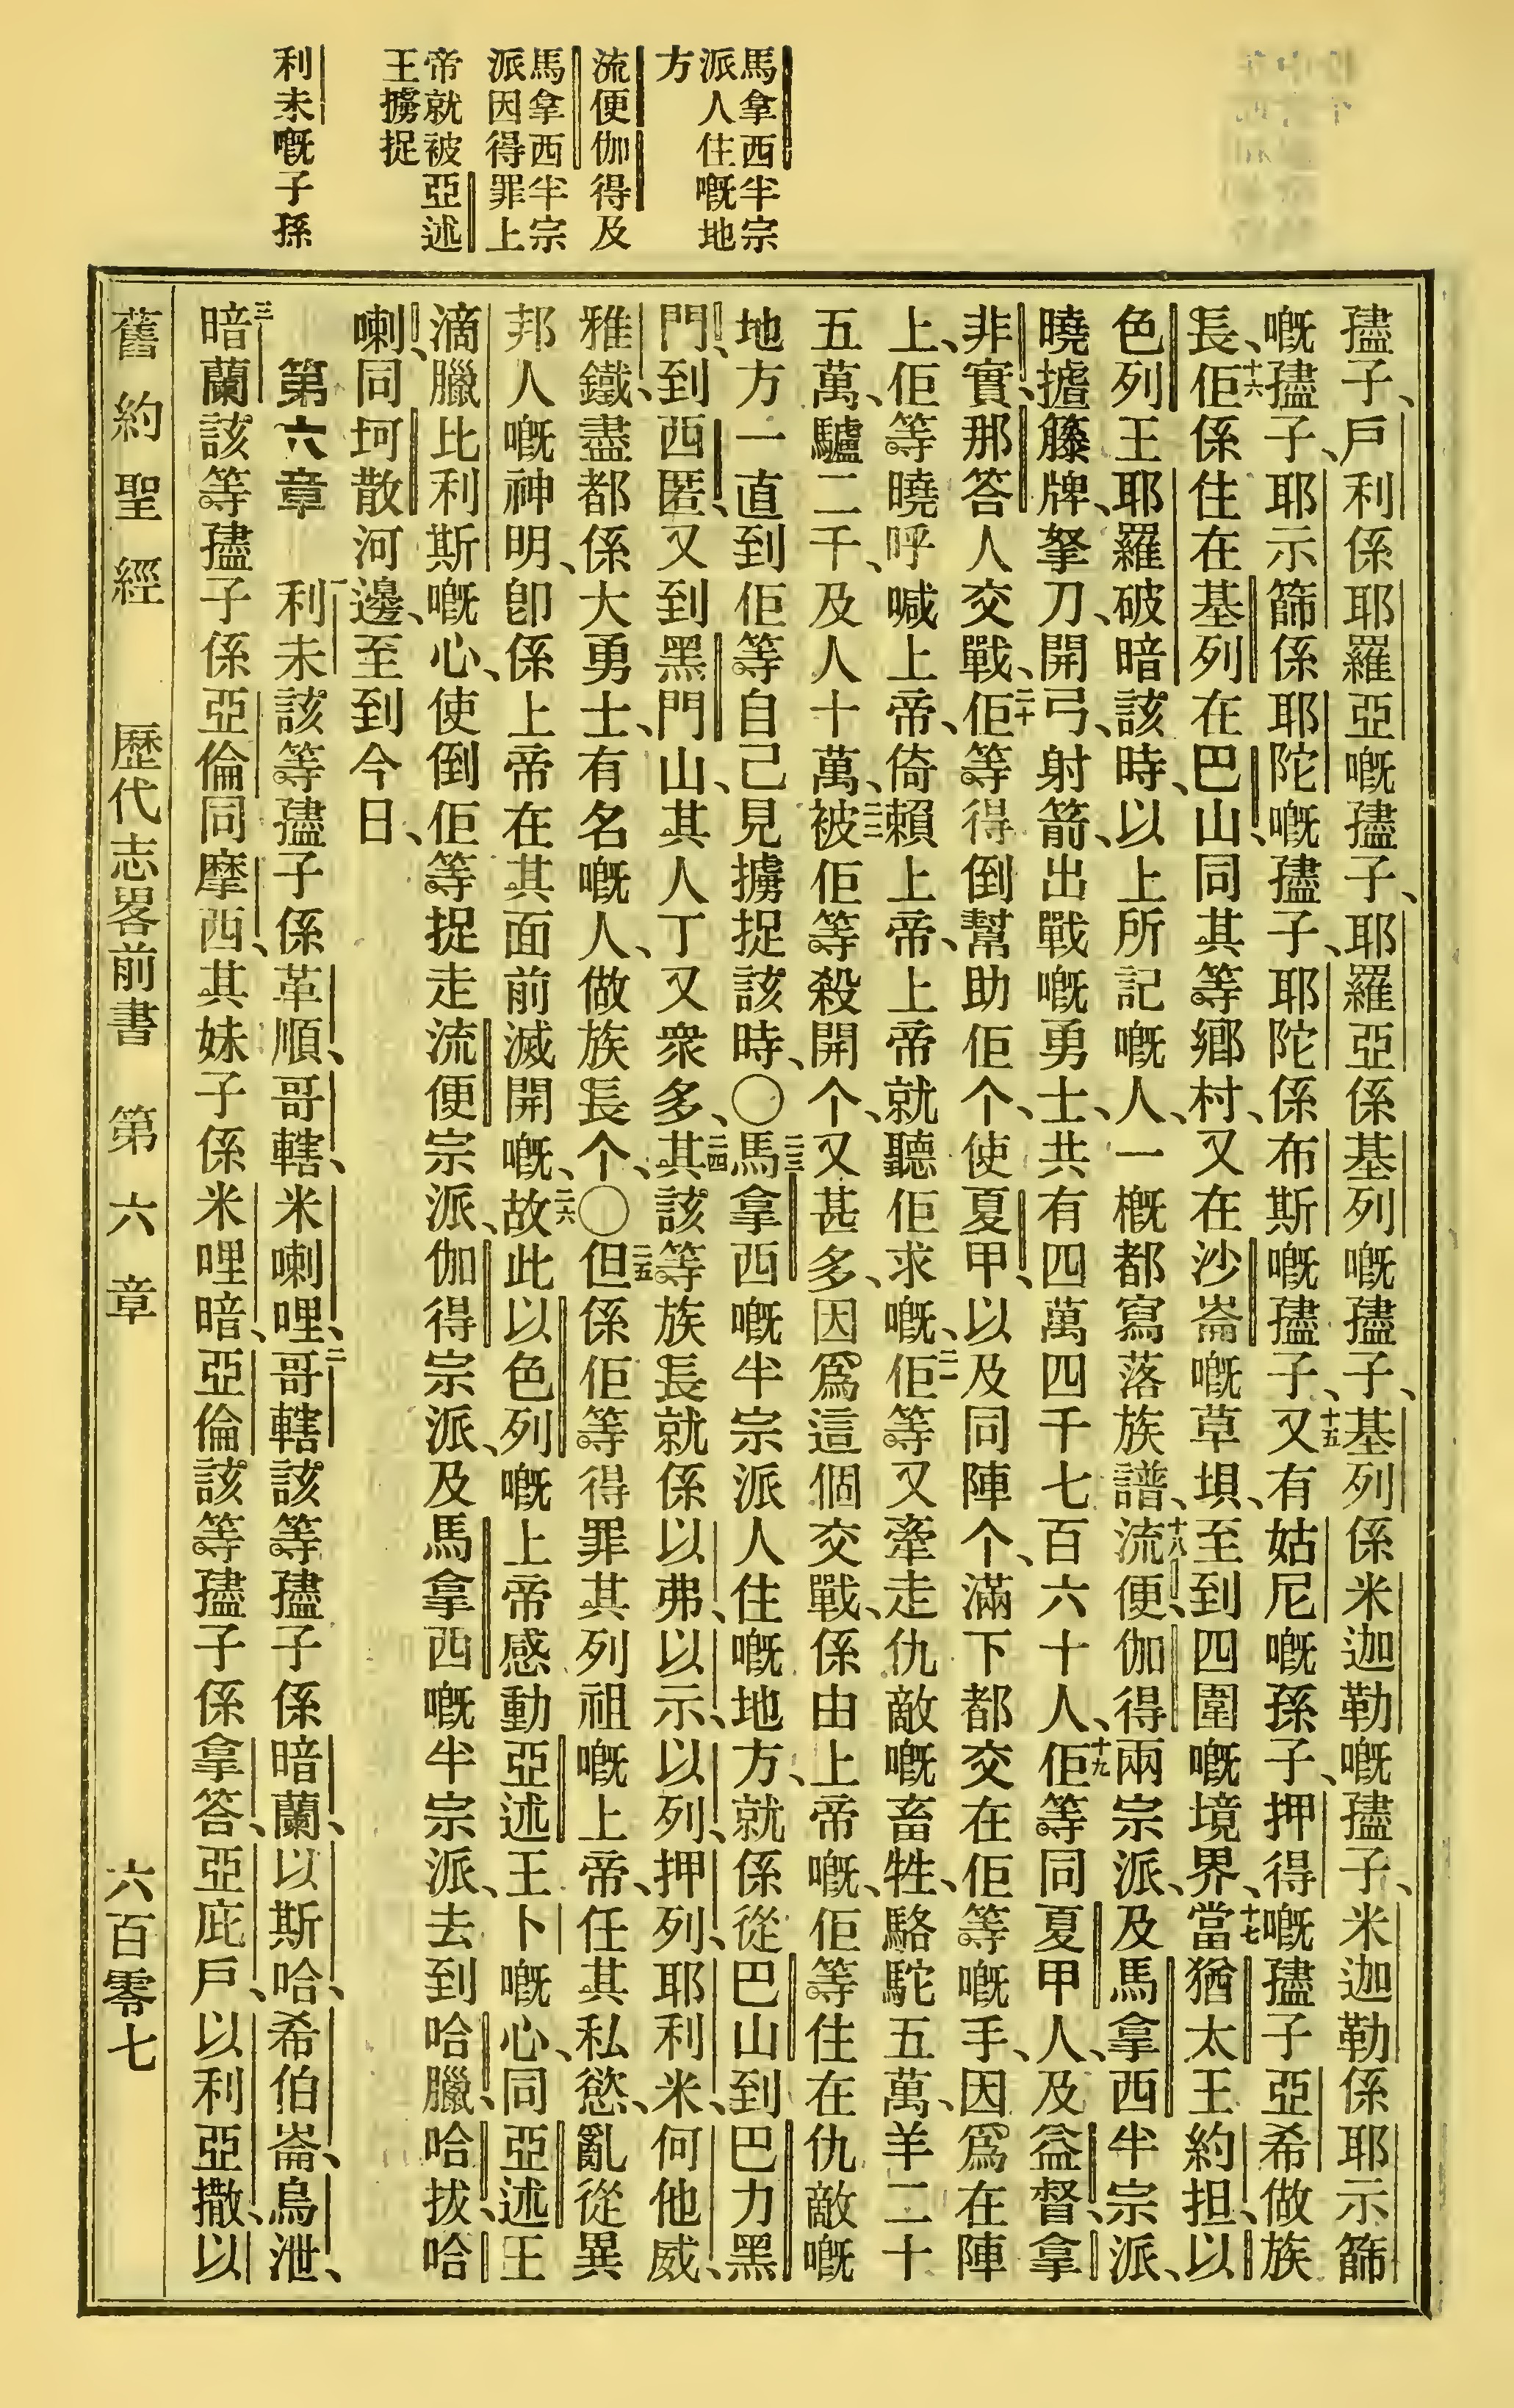 馬拿西半宗
派人住嘅地
方
流便伽得及
馬拿西半宗
派因得罪上
帝就被亞述
王擄捉
利未嘅子孫
孻子、戶利係耶羅亞嘅孻子、耶羅亞係基列嘅孻子、基列係米迦勒嘅孻子、米迦勒係耶示篩
嘅孻子、耶示篩係耶陀嘅孻子、耶陀係布斯嘅孻子、十五又有姑尼嘅孫子、押得嘅孻子亞希做族
長、十六佢係住在基列在巴山、同其等鄉村、又在沙崙嘅草垻、至到四圍嘅境界、十七當猶太王約担、以
色列王耶羅破暗該時、以上所記嘅人、一概都寫落族譜、十八流便、伽得兩宗派、及馬拿西半宗派、
曉揸籐牌、拏刀、開弓、射箭、出戰嘅勇士、共有四萬四千七百六十人、十九佢等同夏甲人、及益督、拿
非實、那答人交戰、二十佢等得倒幫助佢个、使夏甲、以及同陣个、滿下都交在佢等嘅手、因爲在陣
上、佢等曉呼喊上帝、倚賴上帝、上帝就聽佢求嘅、二一佢等又牽走仇敵嘅畜牲、駱駝五萬、羊二十
五萬、驢二千、及人十萬、二二被佢等殺開个、又甚多、因爲這個交戰、係由上帝嘅、佢等住在仇敵嘅
地方一直到佢等自己見擄捉該時、〇二三馬拿西嘅半宗派人住嘅地方、就係從巴山到巴力黑
門、到西匿、又到黑門山、其人丁又衆多、二四其該等族長就係以弗、以示、以列、押列、耶利米、何他威、
雅鐵、盡都係大勇士、有名嘅人、做族長个、〇二五但係佢等得罪其列祖嘅上帝、任其私慾、亂從異
邦人嘅神明、卽係上帝在其面前滅開嘅、二六故此以色列嘅上帝感動亞述王卜嘅心、同亞述王
滴臘比利斯嘅心、使倒佢等捉走流便宗派、伽得宗派、及馬拿西嘅半宗派、去到哈臘、哈拔、哈
喇、同坷散河邊、至到今日、
第六章　利未該等孻子係革順、哥轄、米喇哩、二哥轄該等孻子係暗蘭、以斯哈、希伯崙、烏泄、
三暗蘭該等孻子係亞倫同摩西、其妹子係米哩暗、亞倫該等孻子係拿答、亞庇戶、以利亞撒、以
舊約聖經　歷代志畧前書　第六章　六百零七